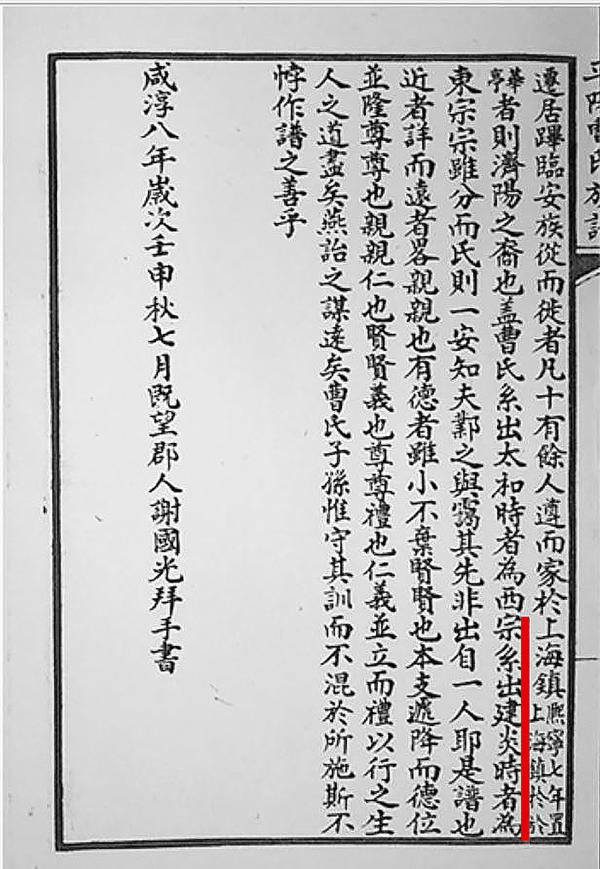 平陽曹氏族譜
遷居蹕臨安族從而徙者凡十有餘人遵而家於上海鎮熙寧七年置上海鎮於於
華亭者則濟陽之裔也盖曹氏系出太和時者為西宗系出建炎時者為
東宗宗雖分而氏則一安知夫鄴之與霱其先非出自一人耶是譜也
近者詳而遠者畧親親也有德者雖小不棄賢賢也本支遞降而德位
並隆尊尊也親親仁也賢賢義也尊尊禮也仁義並立而禮以行之生
人之道盡矣燕詒之謀遠矣曹氏子孫惟守其訓而不混於所施斯不
悖作譜之善乎
咸淳八年嵗次壬申秋七月既望郡人謝國光拜手書